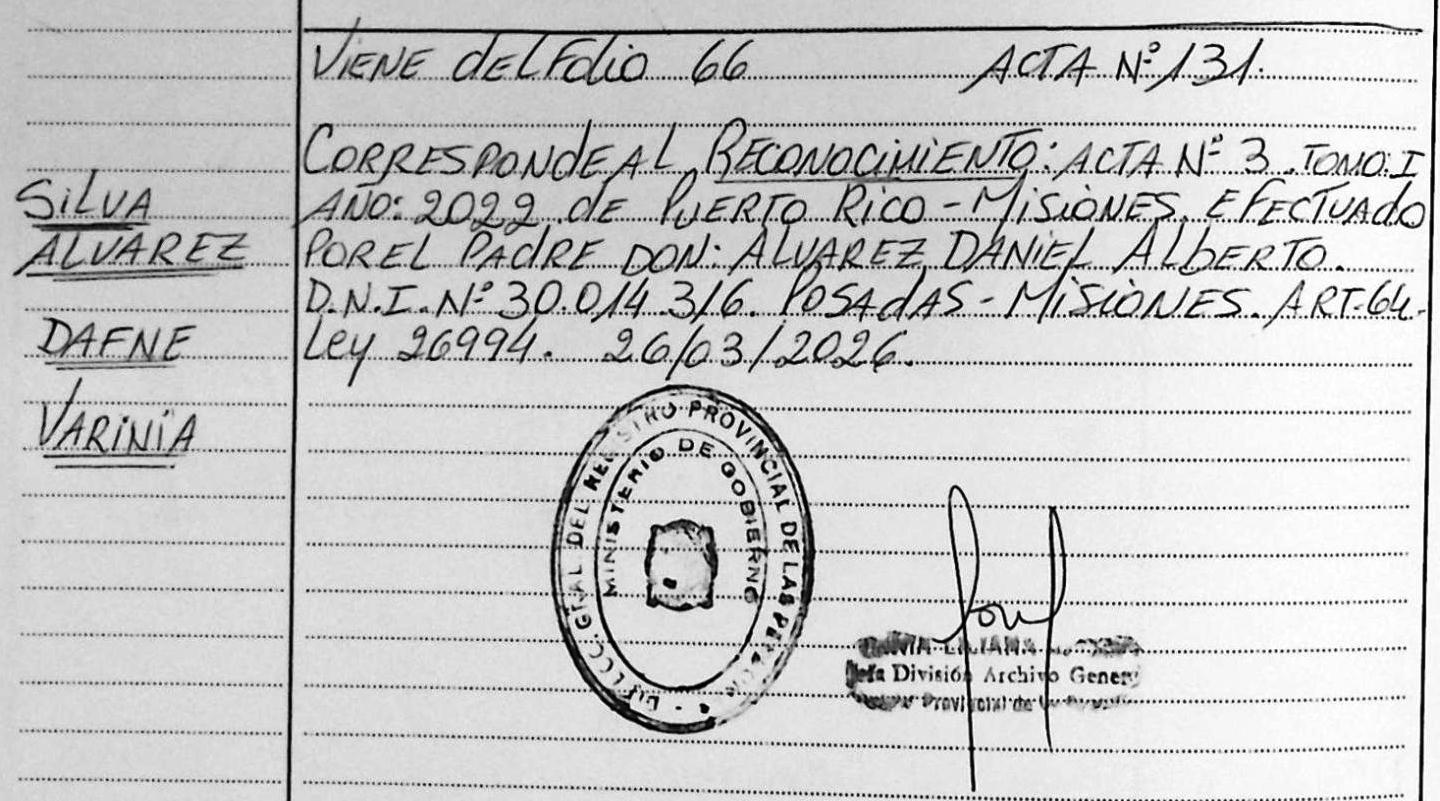 VIENE dEL FOLIO 66 ACTA Nº 131.
CORRESPONdE AL RECONOCIMIENTO: ACTA Nº 3. TOMO: I
AÑO: 2022 de PUERTO RICO - MISIONES. EFECTUAdO
POR EL PAdRE DON: ALVAREZ DANIEL ALbERTO.
D.N.I. Nº 30.014.316. POSAdAS - MISIONES. ART. 64.
Ley 26994. 26/03/2026.
SILVA
ALVAREZ
DAFNE
VARINIA
PROVINCIAL DE LAS
MINISTERIO DE GOBIERNO
LILIANA
Jefa División Archivo
Provincial de